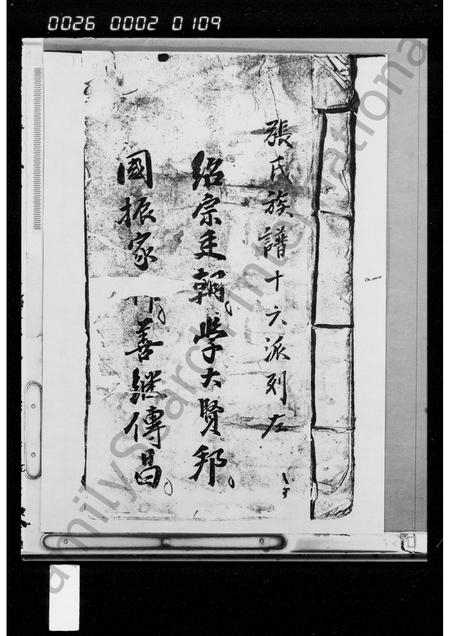 0026 0002 0109
張氏族譜十六派列左
紹宗廷朝學大賢邦
國振家 善繼傳昌
FamilySearch International